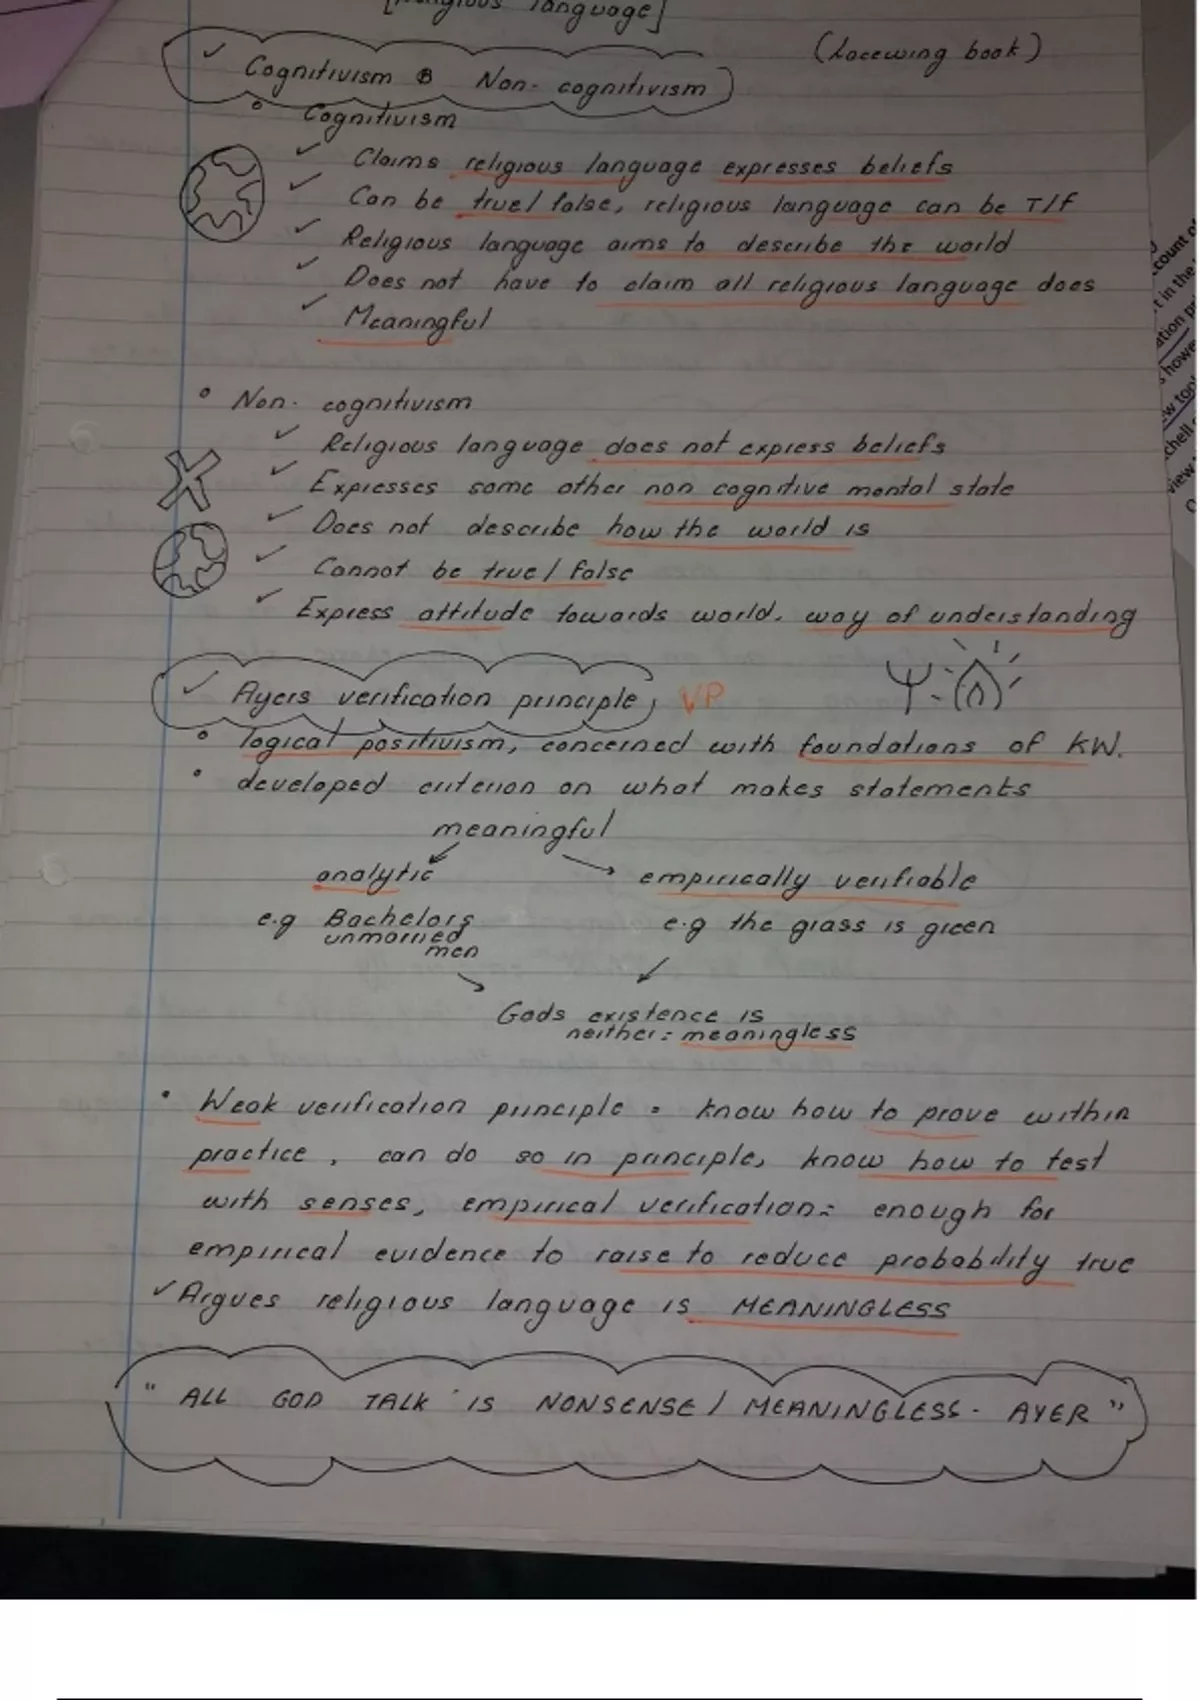 [Religious language]
(Lacewing book)
Cognitivism & Non-cognitivism
Cognitivism
Claims religious language expresses beliefs
Can be true/false, religious language can be T/F
Religious language aims to describe the world
Does not have to claim all religious language does
Meaningful
Non-cognitivism
Religious language does not express beliefs
Expresses some other non cognitive mental state
Does not describe how the world is
Cannot be true/false
Express attitude towards world, way of understanding
Ayers verification principle, VP
logical positivism, concerned with foundations of KW.
developed criterion on what makes statements
meaningful
analytic
empirically verifiable
e.g Bachelors
unmarried
men
e.g the grass is green
Gods existence is
neither = meaningless
Weak verification principle = know how to prove within
practice, can do so in principle, know how to test
with senses, empirical verification = enough for
empirical evidence to raise to reduce probability true
Argues religious language is MEANINGLESS
"ALL GOD TALK IS NONSENSE / MEANINGLESS - AYER"
count o
t in the
ation p
howe
w top
chell
view